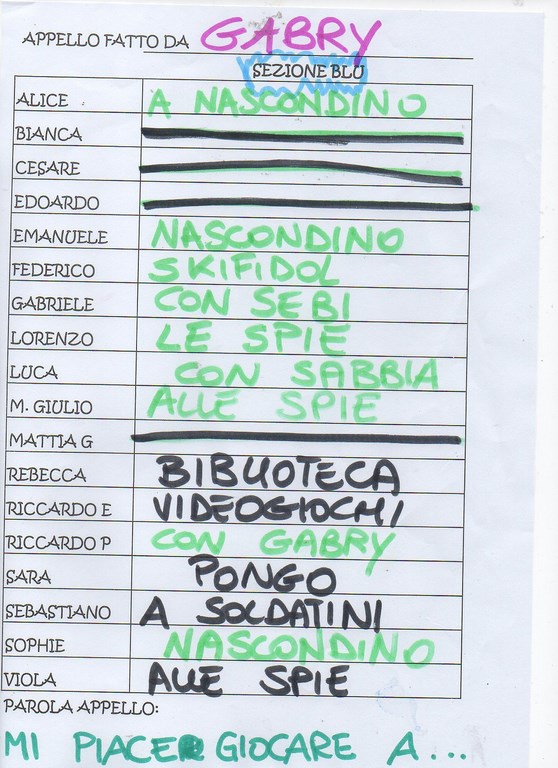 APPELLO FATTO DA GABRY
SEZIONE BLU
ALICE A NASCONDINO
BIANCA
CESARE
EDOARDO
EMANUELE NASCONDINO
FEDERICO SKIFIDOL
GABRIELE CON SEBI
LORENZO LE SPIE
LUCA CON SABBIA
M. GIULIO ALLE SPIE
MATTIA G
REBECCA BIBLIOTECA
RICCARDO E VIDEOGIOCHI
RICCARDO P CON GABRY
SARA PONGO
SEBASTIANO A SOLDATINI
SOPHIE NASCONDINO
VIOLA ALLE SPIE
PAROLA APPELLO:
MI PIACER GIOCARE A...